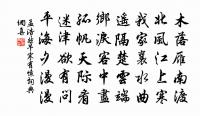 木落雁南渡
北風江上寒
我家襄水曲
遥隔楚雲端
鄉淚客中盡
孤帆天際看
迷津欲有問
平海夕漫漫
孟浩然早寒有懷詞典
網